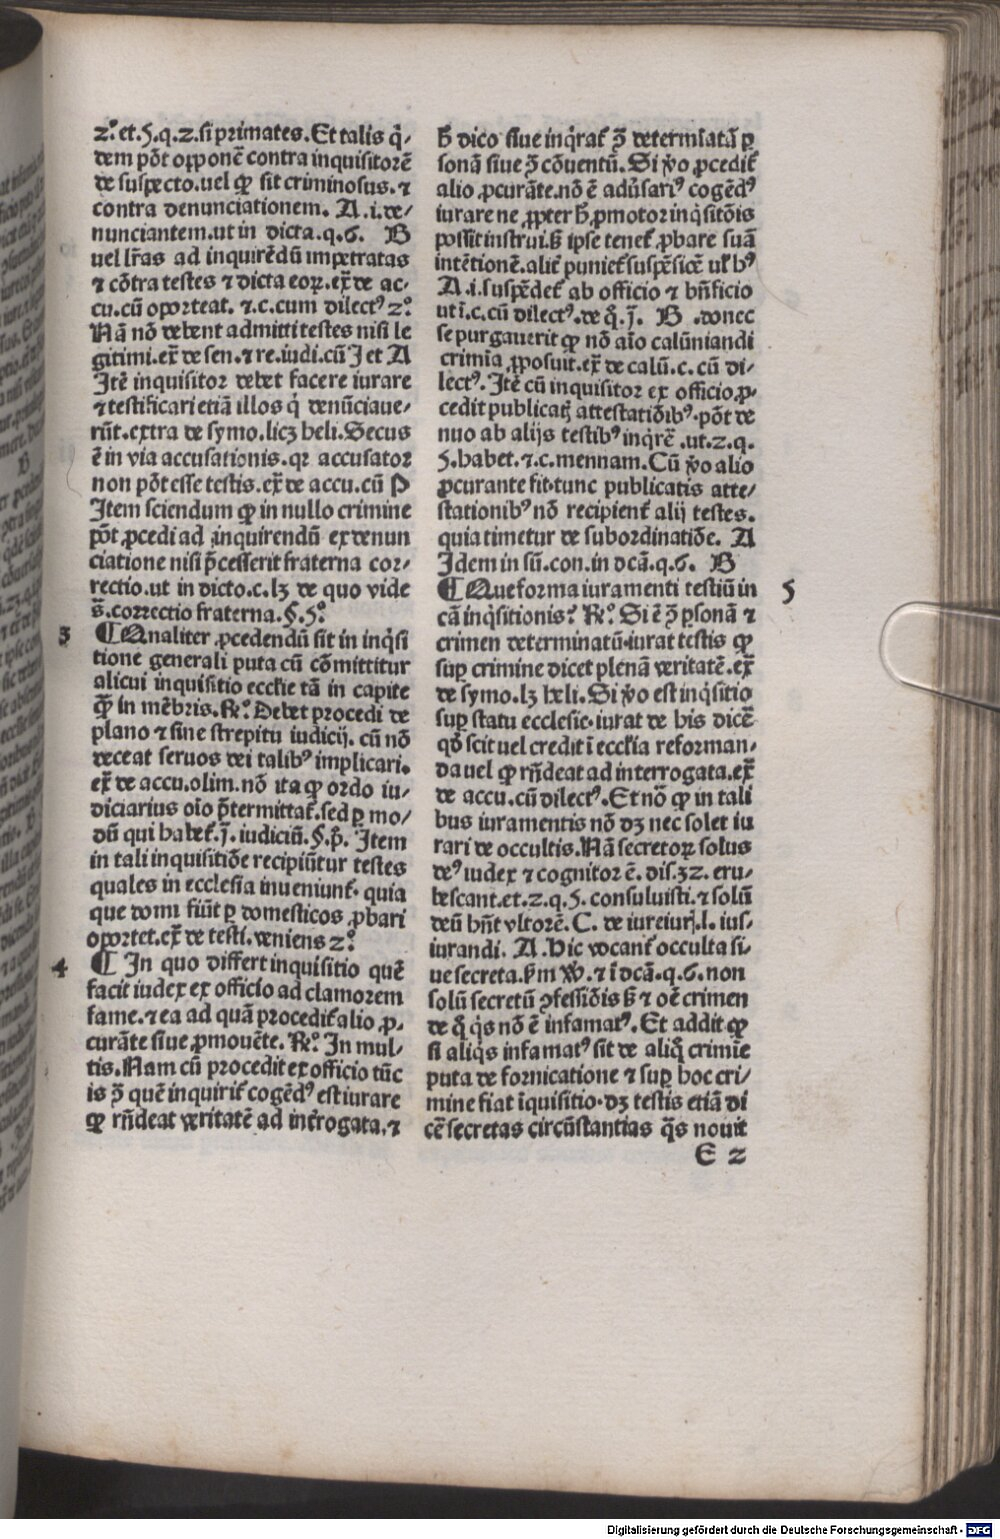 2.° et.5.q.2.si primates. Et talis q̇-
dem põt opponẽ contra inquisitorẽ
de suspecto.uel ꝙ sit criminosus.⁊
contra denunciationem. A.i.de/
nunciantem.ut in dicta.q.6. B
uel lr̃as ad inquirẽdũ impetratas
⁊ cõtra testes ⁊ dicta eoꝝ.ex̃ de ac-
cu.cũ oporteat. ⁊.c.cum dilectꝰ 2.°
Nã nõ debent admitti testes nisi le
gitimi.ex̃ de sen.⁊ re.iudi.cũ I et A
Itẽ inquisitor debet facere iurare
⁊ testificari etiã illos q̇ denũciaue-
rũt.extra de symo.licꝫ heli.Secus
ẽ in via accusationis.qr accusator
non põt esse testis.ex̃ de accu.cũ P
Item sciendum ꝙ in nullo crimine
põt ꝓcedi ad inquirendũ ex denun
ciatione nisi p̃cesserit fraterna cor-
rectio.ut in dicto.c.lꝫ de quo vide
s̃.correctio fraterna.§.5.°
3 ¶Qualiter ꝓcedendũ sit in inq̇si
tione generali puta cũ cõmittitur
alicui inquisitio ecclie tã in capite
ꝙ̃ in mẽbris.℞.° Debet procedi de
plano ⁊ sine strepitu iudicij. cũ nõ
deceat seruos dei talibꝰ implicari.
ex̃ de accu.olim.nõ ita ꝙ ordo iu-
diciarius oĩo p̃termittat̃.sed ꝑ mo/
dũ qui habet̃.j̃.iudiciũ.§.p̃. Item
in tali inquisitiõe recipiũtur testes
quales in ecclesia inueniunt̃. quia
que domi fiũt ꝑ domesticos ꝓbari
oportet.ex̃ de testi.veniens 2.°
4 ¶ In quo differt inquisitio quẽ
facit iudex ex officio ad clamorem
fame.⁊ ea ad quã procedit̃ alio ꝓ-
curãte siue ꝓmouẽte. ℞.° In mul-
tis.Nam cũ procedit ex officio tũc
is ꝯ̃ quẽ inquirit̃ cogẽdꝰ est iurare
ꝙ rñdeat veritatẽ ad int̃rogata.⁊
h̃ dico siue inq̇rat̃ ꝯ̃ determĩatã ꝑ
sonã siue ꝯ̃ cõuentũ.Si v̊o ꝓcedit̃
alio ꝓcurãte.nõ ẽ adũsariꝰ cogẽdꝰ
iurare ne ꝓpter h̃ ꝓmotor inq̇sitõis
possit instrui.s̃ ipse tenet̃ ꝓbare suã
intẽtionẽ.alit̃ puniet̃ suspẽsiõe ul̃ bꝰ
A.i.suspẽdet̃ ab officio ⁊ bñficio
ut ĩ.c.cũ dilectꝰ.de q̃.j̃. B .donec
se purgauerit ꝙ nõ aĩo calũniandi
crimĩa ꝓposuit.ex̃ de calũ.c.cũ di-
lectꝰ.Itẽ cũ inquisitor ex officio ꝓ-
cedit publicatꝭ attestatiõibꝰ.põt de
nuo ab alijs testibꝰ inq̇rẽ.ut.2.q.
5.habet.⁊.c.mennam.Cũ v̊o alio
ꝓcurante fit.tunc publicatis atte/
stationibꝰ nõ recipient̃ alij testes.
quia timetur de subordinatiõe. A
Idem in sũ.con.in dcã.q.6. B
¶Que forma iuramenti testiũ in 5
cã inq̇sitionis? ℞.° Si ẽ ꝯ̃ ꝑsonã ⁊
crimen determinatũ.iurat testis ꝙ
suꝑ crimine dicet plenã veritatẽ.ex̃
de symo.lꝫ heli.Si v̊o est inq̇sitio
suꝑ statu ecclesie.iurat de his dicẽ
qḋ scit uel credit ĩ ecclesia reforman-
da uel ꝙ rñdeat ad interrogata.ex̃
de accu.cũ dilectꝰ.Et nõ ꝙ in tali
bus iuramentis nõ dꝫ nec solet iu
rari de occultis.Nã secretoꝝ solus
deꝰ iudex ⁊ cognitor ẽ. dis.32. eru-
bescant.et.2.q.5. consuluisti.⁊ solũ
deũ hñt vltorẽ. C. de iureiurꝭ.l. ius-
iurandi. A.Hic vocant̃ occulta si-
ue secreta.s̃m W̃.⁊ ĩ dcã.q.6.non
solũ secretũ ꝯfessiõis s̃ ⁊ oẽ crimen
de q̃ q̇s nõ ẽ infamatꝰ.Et addit ꝙ
si aliq̇s infamatꝰ sit de aliq̃ crimĩe
puta de fornicatione ⁊ suꝑ hoc cri/
mine fiat ĩquisitio.dꝫ testis etiã di
cẽ secretas circũstantias q̃s nouit
E 2
Digitalisierung gefördert durch die Deutsche Forschungsgemeinschaft - DFG